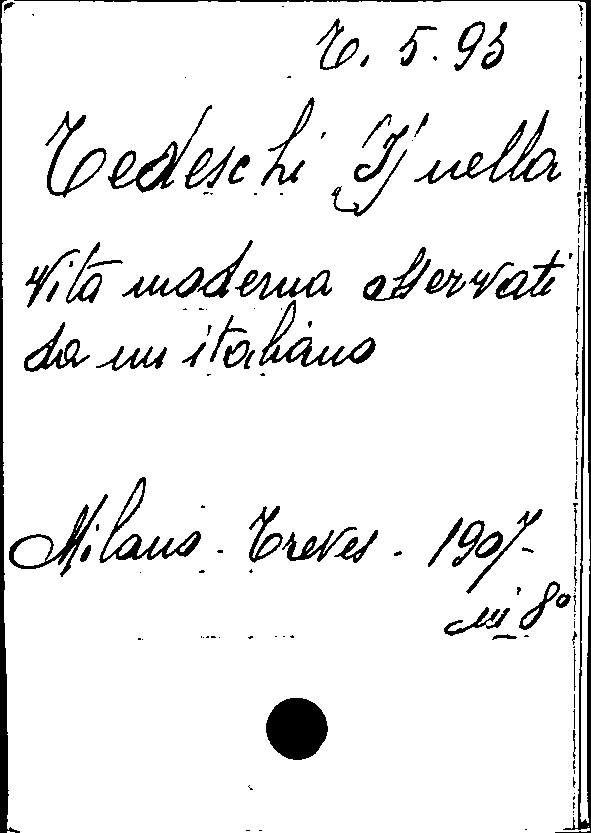 T. 5. 93
Tedeschi (I) nella
vita moderna osservati
da un italiano
Milano - Treves - 1907 -
in 8°